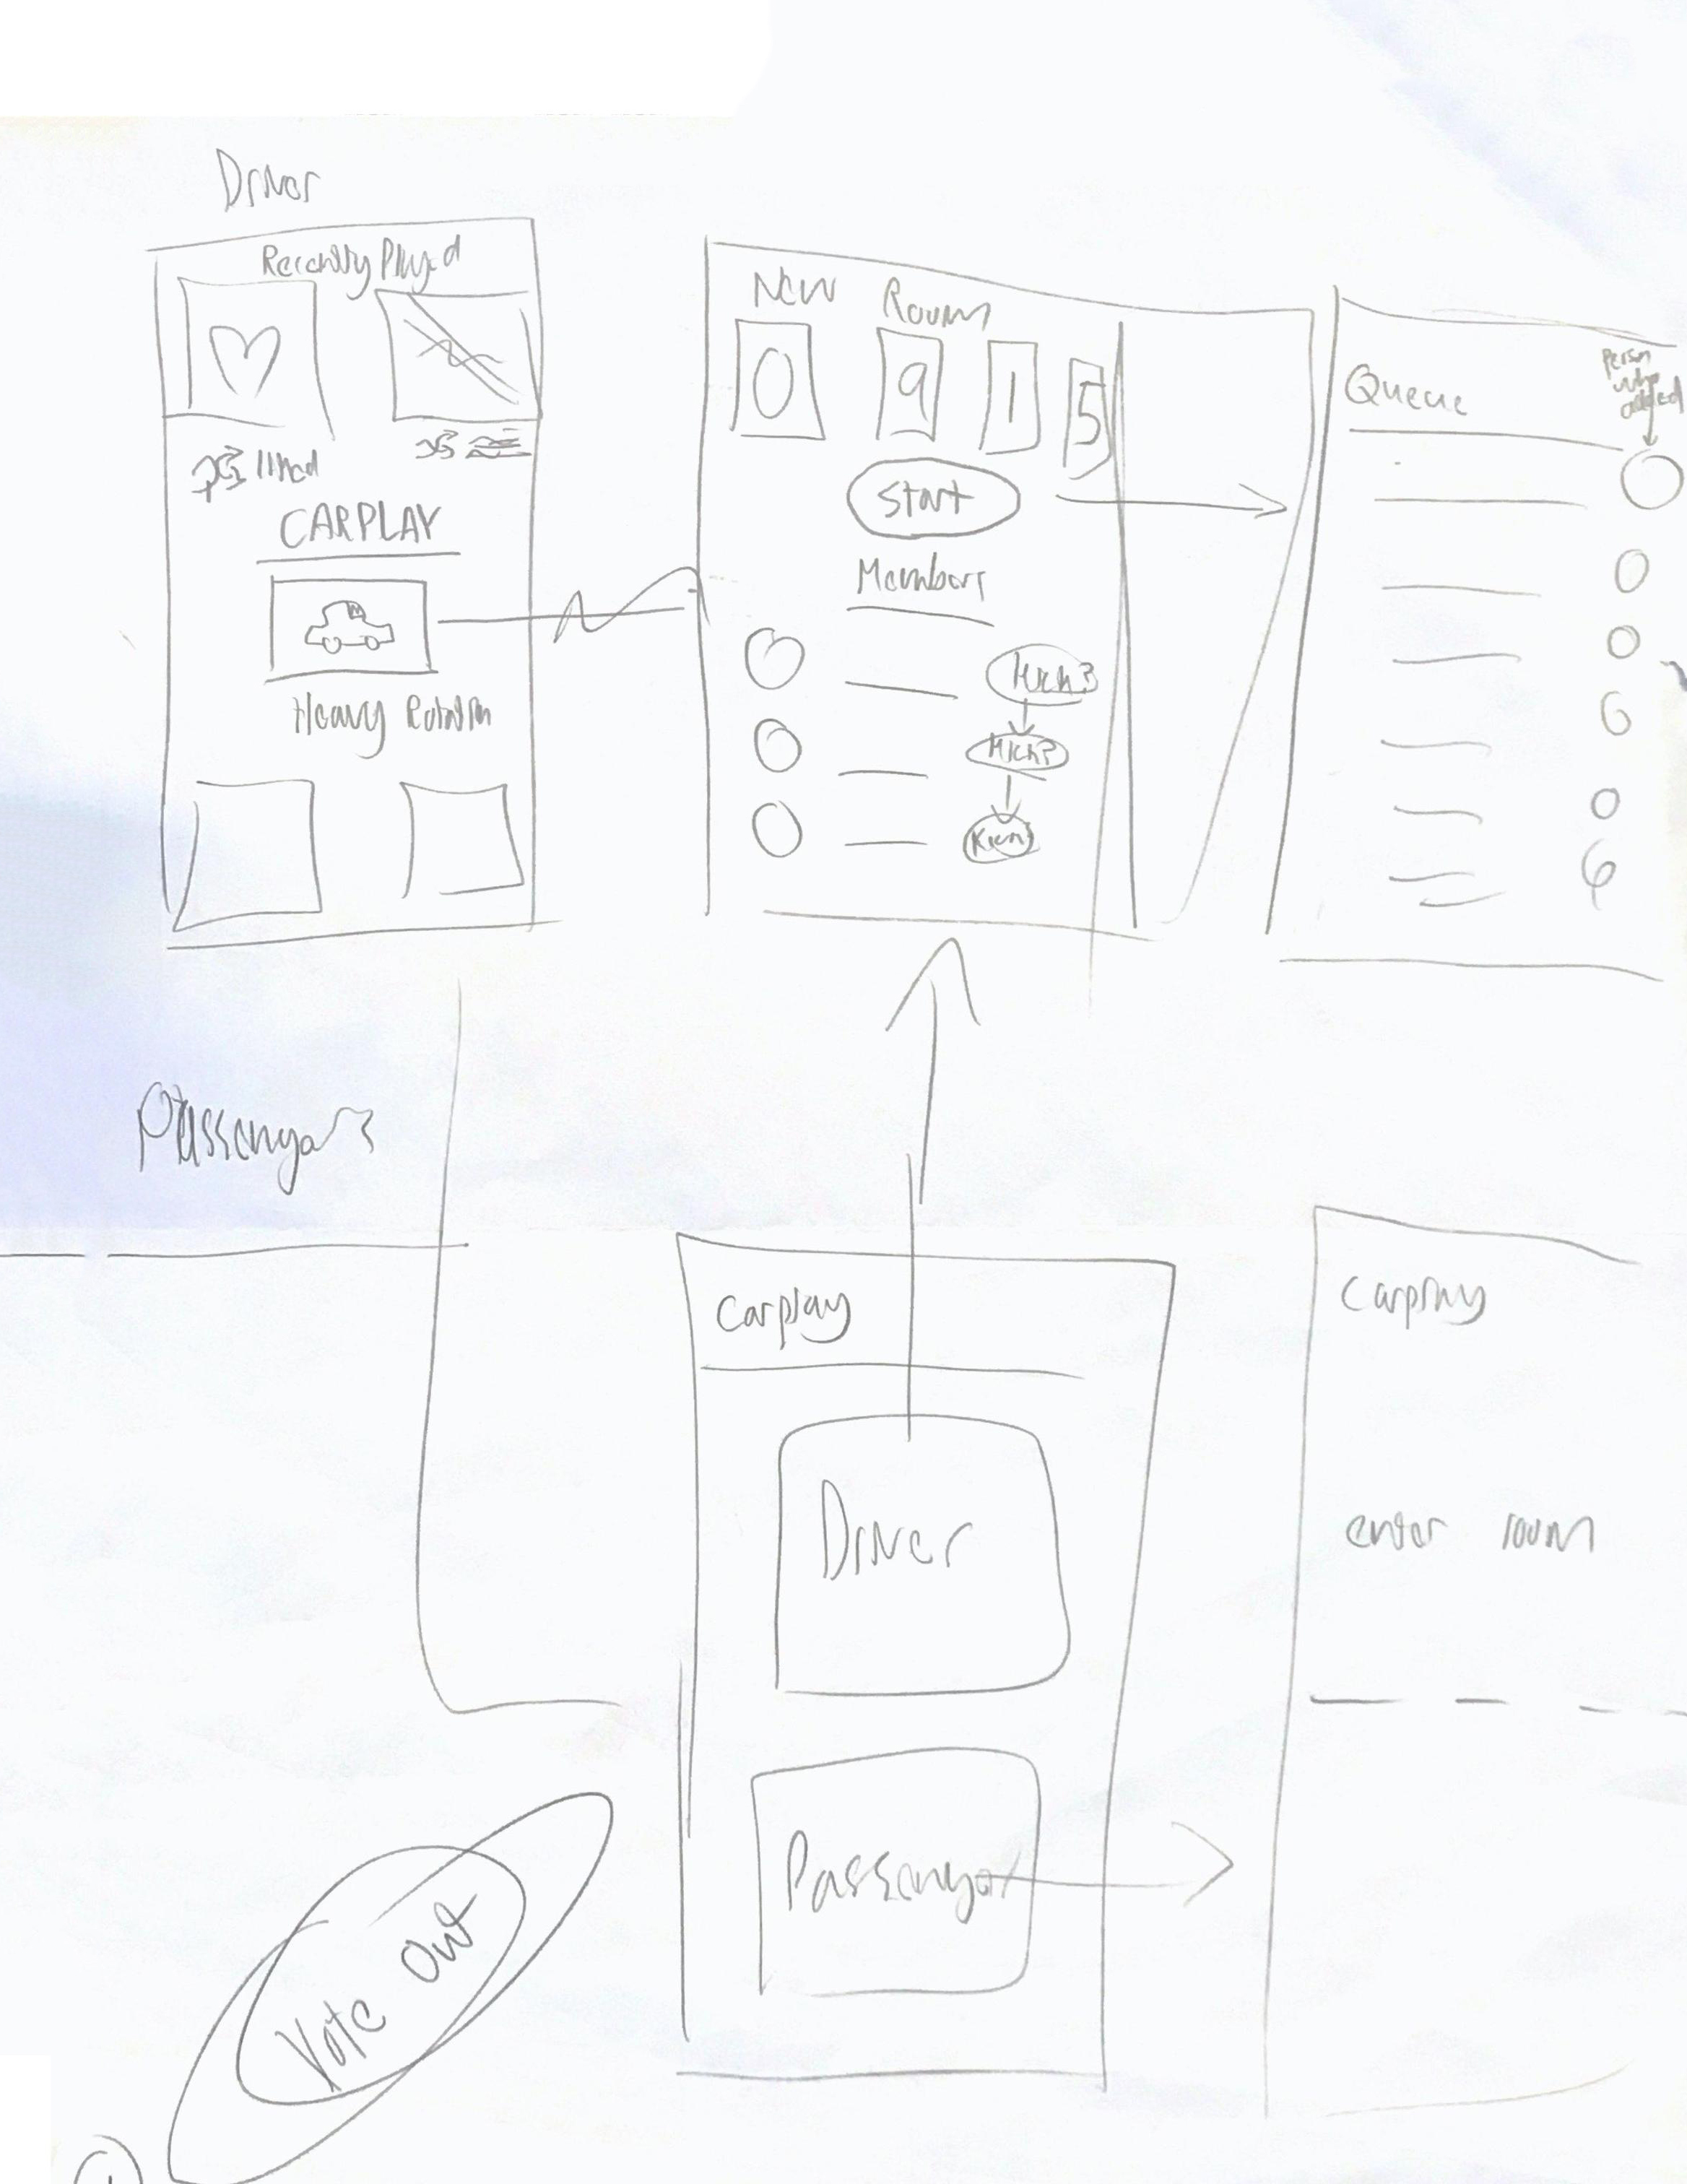 Driver
Recently Played
liked
CARPLAY
Heavy Rotation
New Room
0 9 1 5
Start
Members
Kick?
Kick?
Queue
Person
who
added
Passengers
Carplay
Driver
Passenger
Carplay
enter room
Vote Out